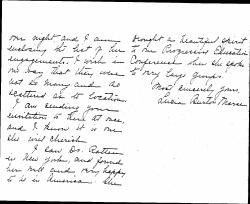 one night and I am
enclosing the list of her
engagements. I wish in
no way that they were
not so many and so
scattered as to location.
I am sending your
invitation to her at once,
and I know it is one
she will cherish.
I saw Dr. 
in New York, and found
her well and very happy
to be in America. She
brought a beautiful spirit
to our Progressive Education
Conference when she spoke
to very large groups.
Most sincerely yours,
Lucia Burton Morse